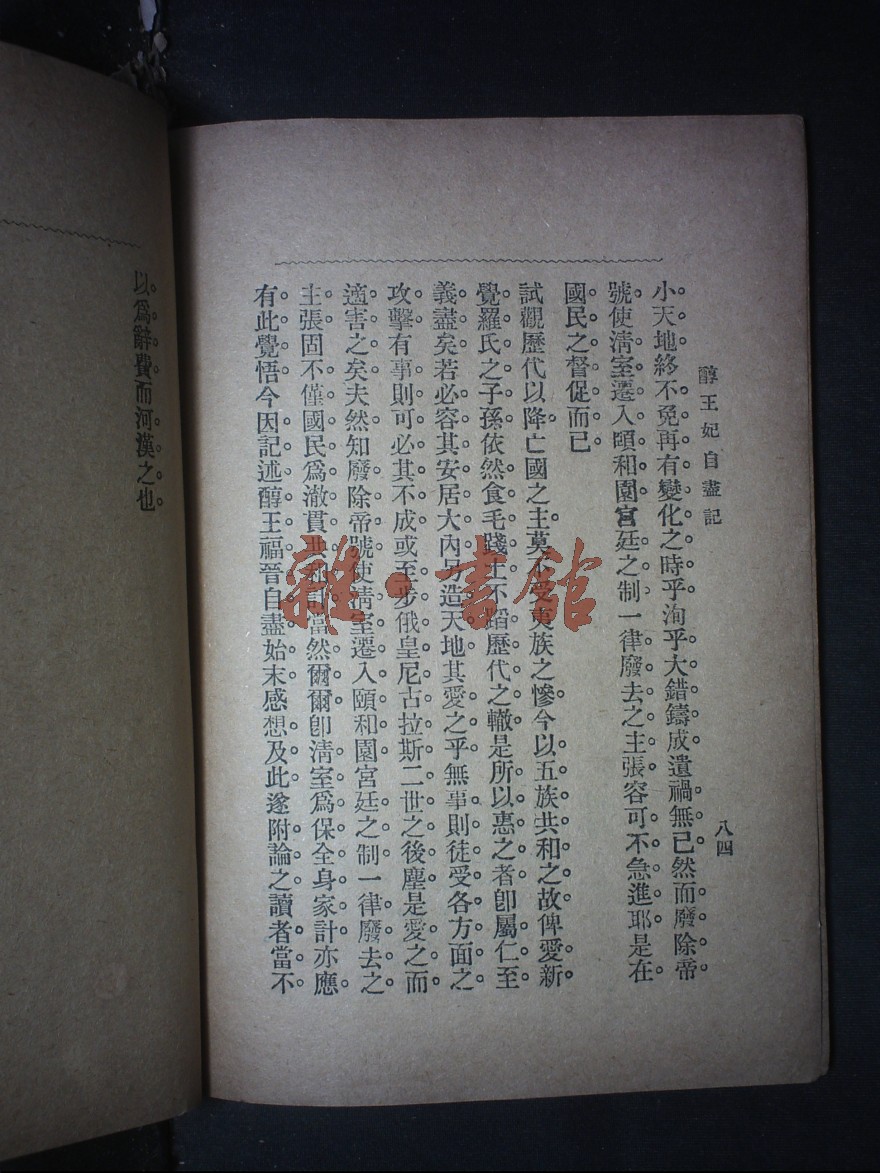 醇王妃自盡記
八四
小天地終不免再有變化之時乎洵乎大錯鑄成遺禍無已然而廢除帝
號使淸室遷入頤和園宮廷之制一律廢去之主張容可不急進耶是在
國民之督促而已
試觀歷代以降亡國之主莫不受夷族之慘今以五族共和之故俾愛新
覺羅氏之子孫依然食毛踐土不蹈歷代之轍是所以惠之者卽屬仁至
義盡矣若必容其安居大內另造天地其愛之乎無事則徒受各方面之
攻擊有事則可必其不成或至步俄皇尼古拉斯二世之後塵是愛之而
適害之矣夫然知廢除帝號使淸室遷入頤和園宮廷之制一律廢去之
主張固不僅國民爲澈貫共和計當然爾爾卽淸室爲保全身家計亦應
有此覺悟今因記述醇王福晉自盡始末感想及此遂附論之讀者當不
以爲辭費而河漢之也
雜·書館